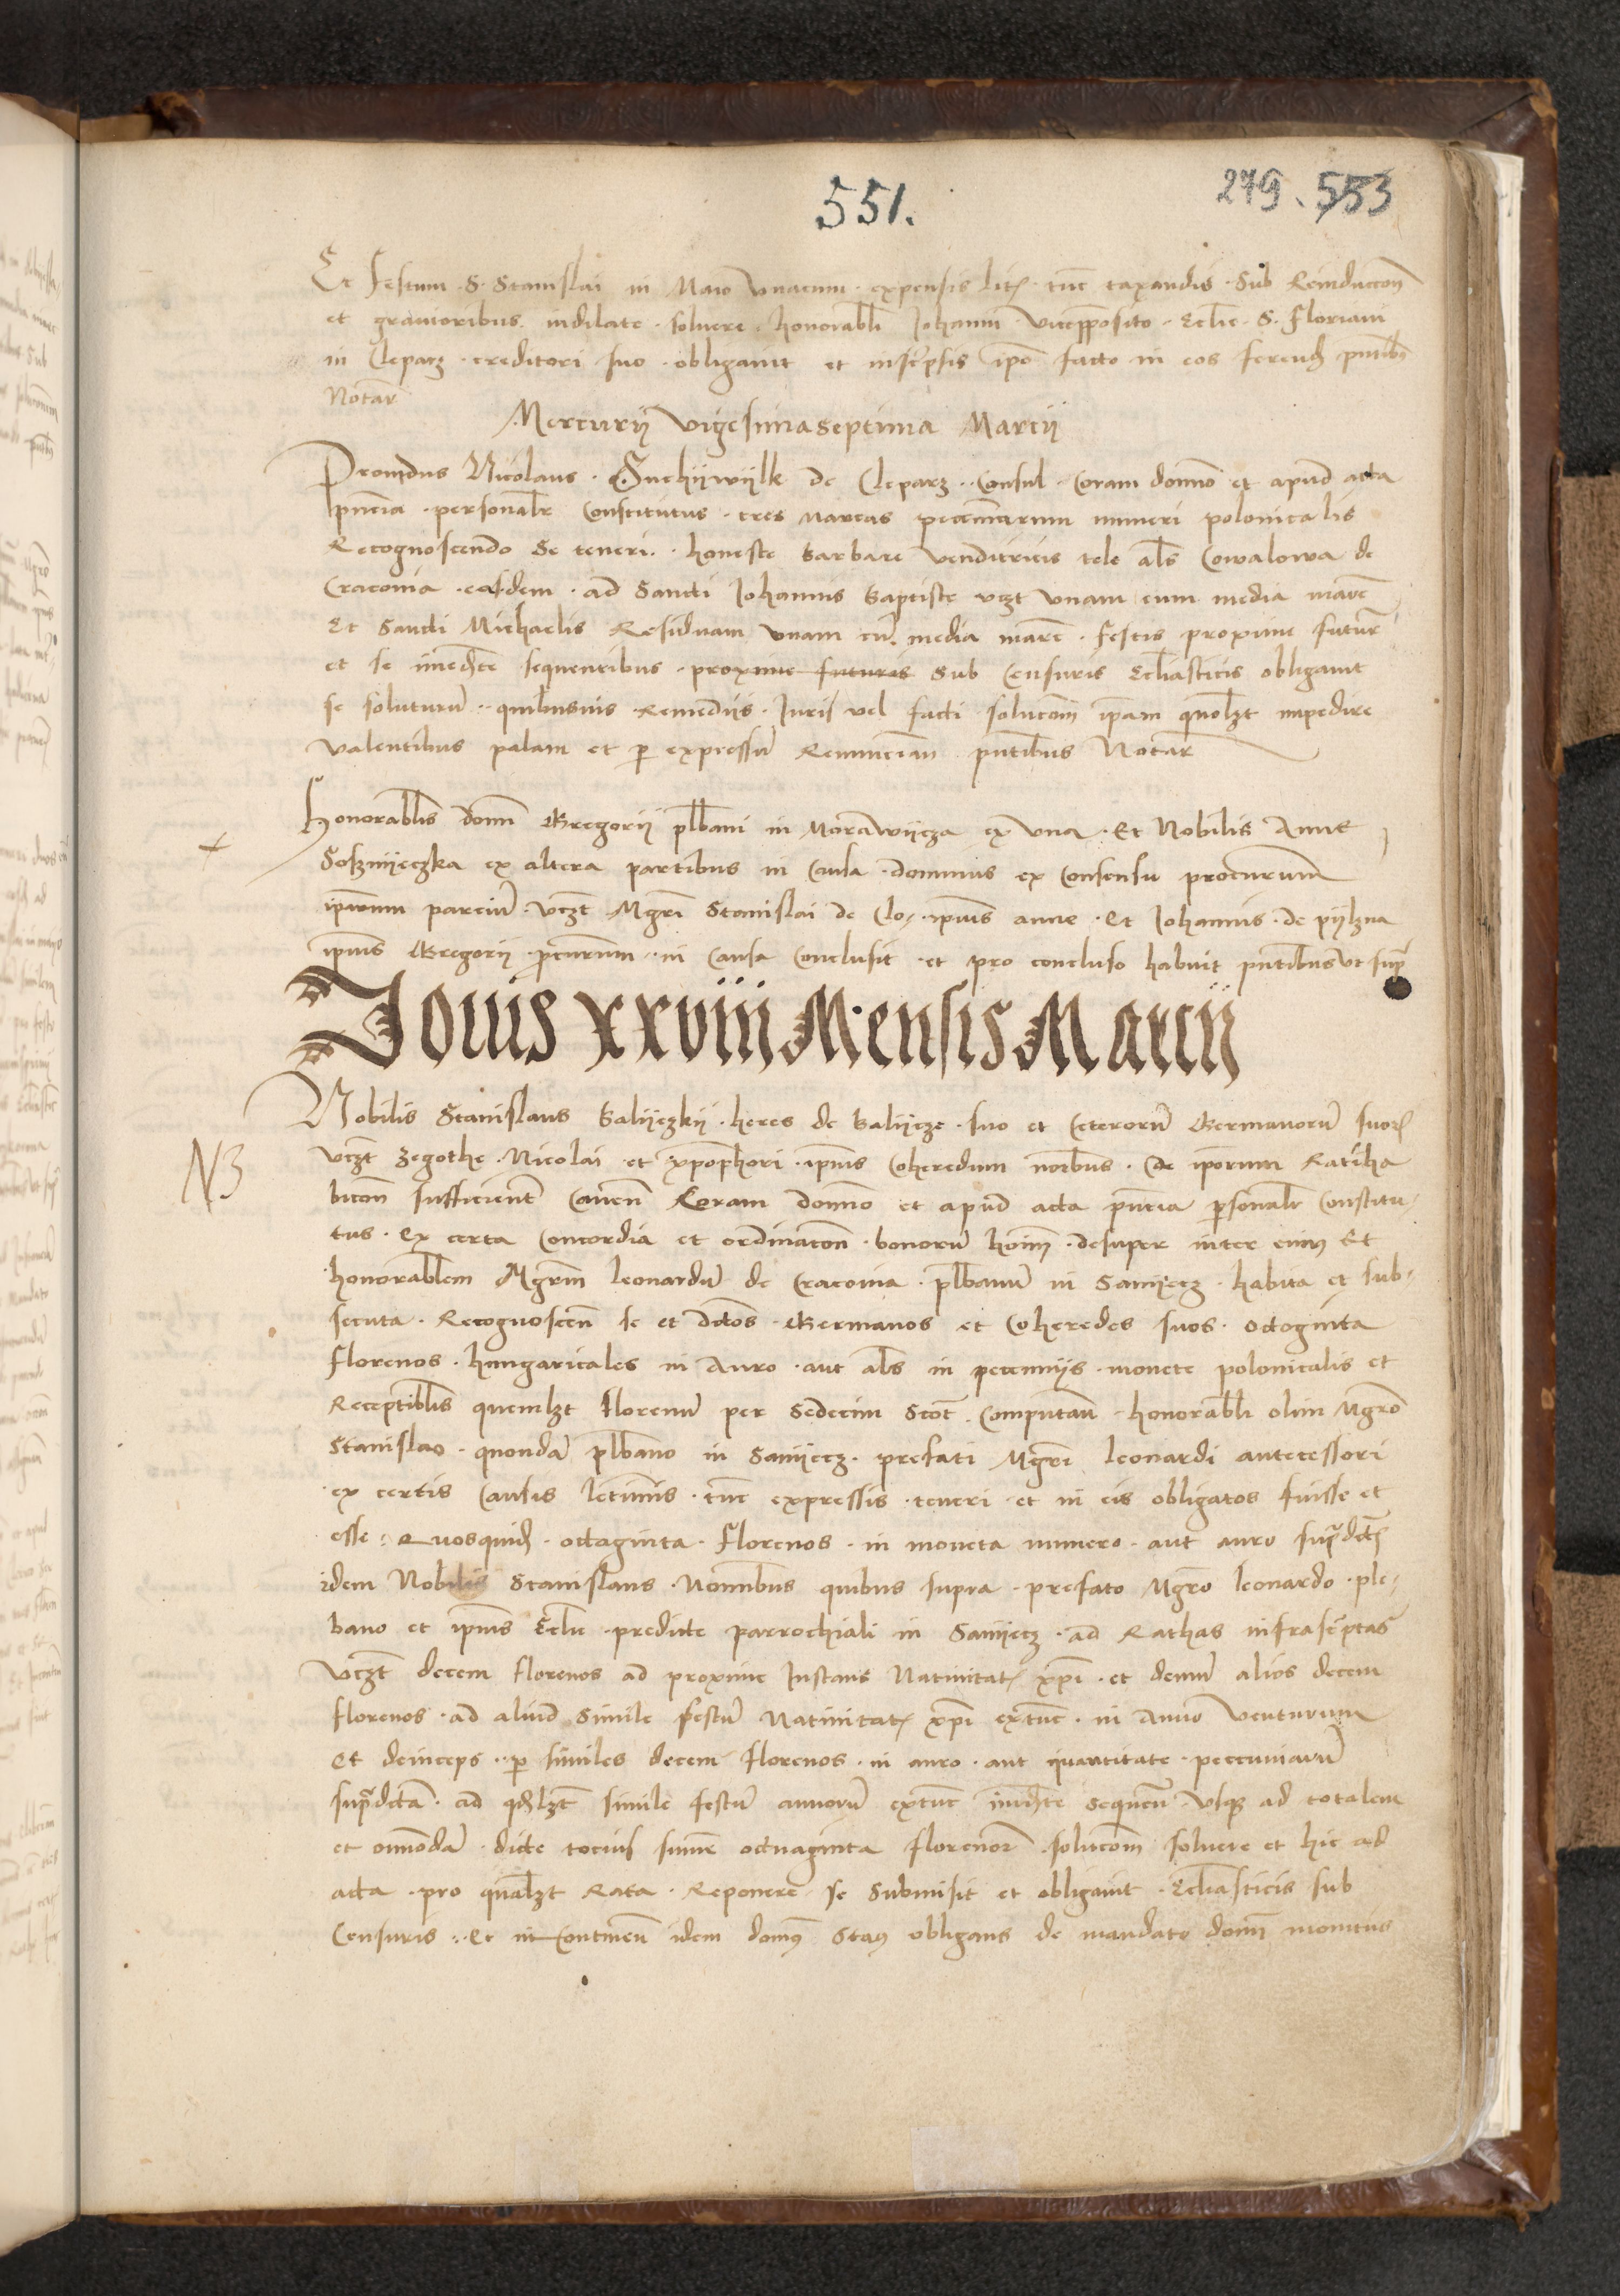 551.
279. 553
Et festum S. Stanislai in Maio unacum expensis litis tunc taxandis sub Reinduccōn
et gravioribus indilate soluere honorabli Iohanni viceppōsito Eclīe S. Floriani
in Cleparz creditori suo obligavit et inscripsis ipō facto in eos ferend̄ pn̄tibus
Notar̄
Mercurij vigesimaseptima Marcij
Providus Nicolaus Suchijwijlk de Cleparz Consul Coram domno et apud acta
pn̄cia personalr̄ Constitutus tres marcas pecuniarum numeri polonicalis
Recognoscendo se teneri honeste Barbare venditricis tele als̄ Cowalowa de
Cracovia easdem ad Sancti Iohannis Baptiste vczt unam cum media marc̄
Et Sancti Michaelis Residuam unam cū media marc̄ festis proxime futur̄
et se imediate sequentibus proxime futuris sub Censuris Eclīasticis obligavit
se soluturū quibusuis Remediis Iuris vel facti solucōm ipam quolzt impedire
valentibus palam et p expressū Renuncian̄ pn̄tibus Notar̄
Honorablis domn̄ Gregorij plbani in Morawijcza ex una Et Nobilis Anne
Sosznijeczka ex altera partibus in Causa dominus ex Consensu procurum
ipārum parciū vczt Mgrī Stanislai de Clo ipius anne Et Iohannis de pijlzna
ipius Gregorij pcurum in Causa Conclusit et pro concluso habuit pn̄tibus ut sup̄
Iovis xxviii Mensis Marcij
Nobilis Stanislaus Balijczkij heres de Balijcze suo et Ceterorū Germanorū suor̄
N3
vczt Zegothe Nicolai et xpōphori ipius Coheredum noībus de ipōrum Ratiha
bicōn sufficient̄ Caven̄ Coram domno et apud acta pn̄cia psonalr̄ Constitu
tus Ex certa Concordia et ordinacōn bonorū hoīm desuper inter eum Et
honorablem Mgrm̄ leonardū de Cracovia plbanū in Sanijecz habita et sub
secuta Recognoscen̄ se et dctos Germanos et Coheredes suos octoginta
florenos hungaricales in Auro aut als̄ in pecuniis monete polonicalis et
Receptiblis quemlzt florenū per sedecim Scot̄ Computan̄ honorabli olim Mgrō
Stanislao quondā plbano in Sanijecz prefati Mgrī leonardi antecessori
ex certis Causis letimis tunc expressis teneri et in eis obligatos fuisse et
esse Quosquid̄ octoginta florenos in moneta numero aut auro sup̄dct̄
idem Nobilis Stanislaus Nominibus quibus supra prefato Mgrō leonardo ple
bano et ipius Eclīe predicte parrochiali in Sanijecz ad Rathas infrascptas
vczt decem florenos ad proxime Instans Nativitatis xp̄i et demū alios decem
florenos ad aliud simile festū Nativitatis xp̄i extunc in Anno venturum
Et deinceps p similes decem florenos in auro aut quantitate peccuniarū
sup̄dcta ad qdlzt simile festū annorū extunc imediate sequen̄ vsq ad totalem
et omōdā dicte tocius sum̄e octuaginta florenor̄ solucōm soluere et hic ad
acta pro qualzt Rata Reponere se submisit et obligavit Eclīasticis sub
Censuris Et in Continen̄ idem domns̄ Stas̄ obligans de mandato domn̄ monitus